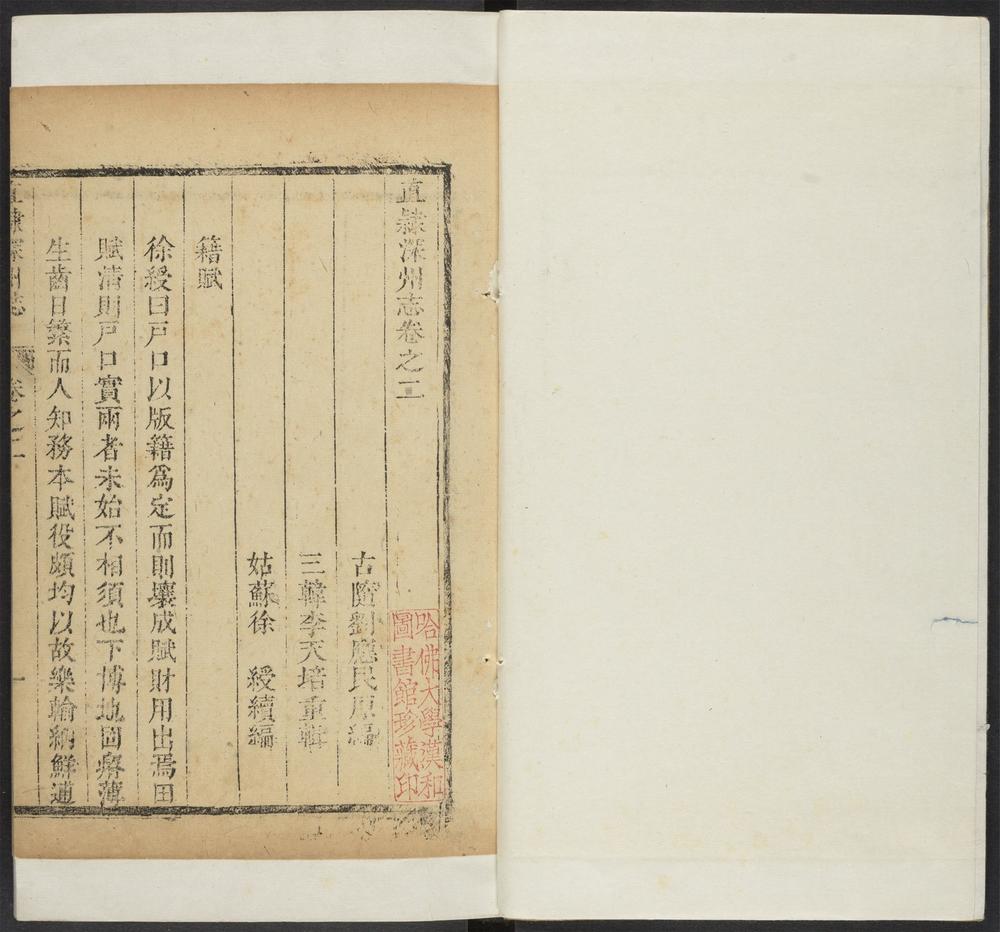 直隷深州志卷之二
古隨劉應民原編
三韓李天培重輯
姑蘇徐 綬續編
籍賦
徐綬曰戸口以版籍爲定而則壤成賦財用出焉田
賦清則戸口實兩者未始不相須也下博地固瘠薄
生齒日繁而人知務本賦役頗均以故樂輸納鮮逋
直隷深州志 卷之二 一
哈佛大學漢和
圖書館珍藏印